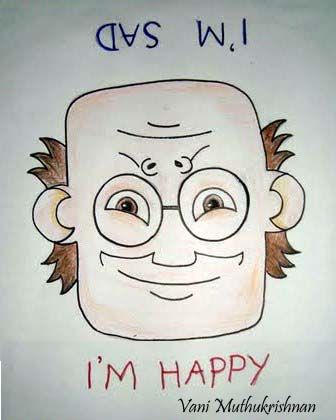 I'M SAD
I'M HAPPY
Vani Muthukrishnan